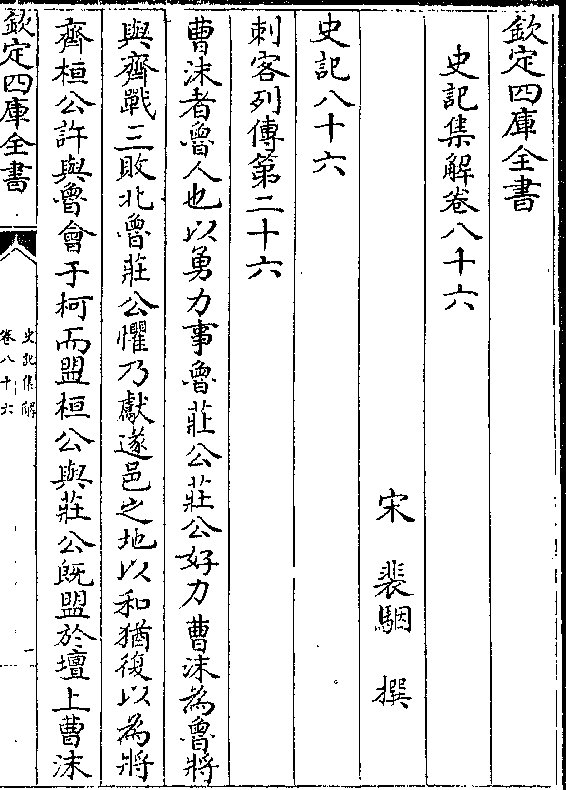 欽定四庫全書
史記集解卷八十六
宋 裴駰 撰
史記八十六
刺客列傳第二十六
曹沫者魯人也以勇力事魯莊公莊公好力曹沫為魯將
與齊戰三敗北魯莊公懼乃獻遂邑之地以和猶復以為將
齊桓公許與魯會于柯而盟桓公與莊公既盟於壇上曹沫
欽定四庫全書
史記集解
卷八十六
一